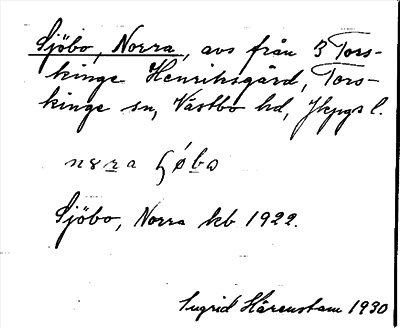 Sjöbo, Norra, avs från 3 Tors-
kinge Henriksgård, Tors-
kinge sn, Västbo hd, Jkpgs l.
Sjöbo, Norra kb 1922.
Ingrid Hårenstam 1930